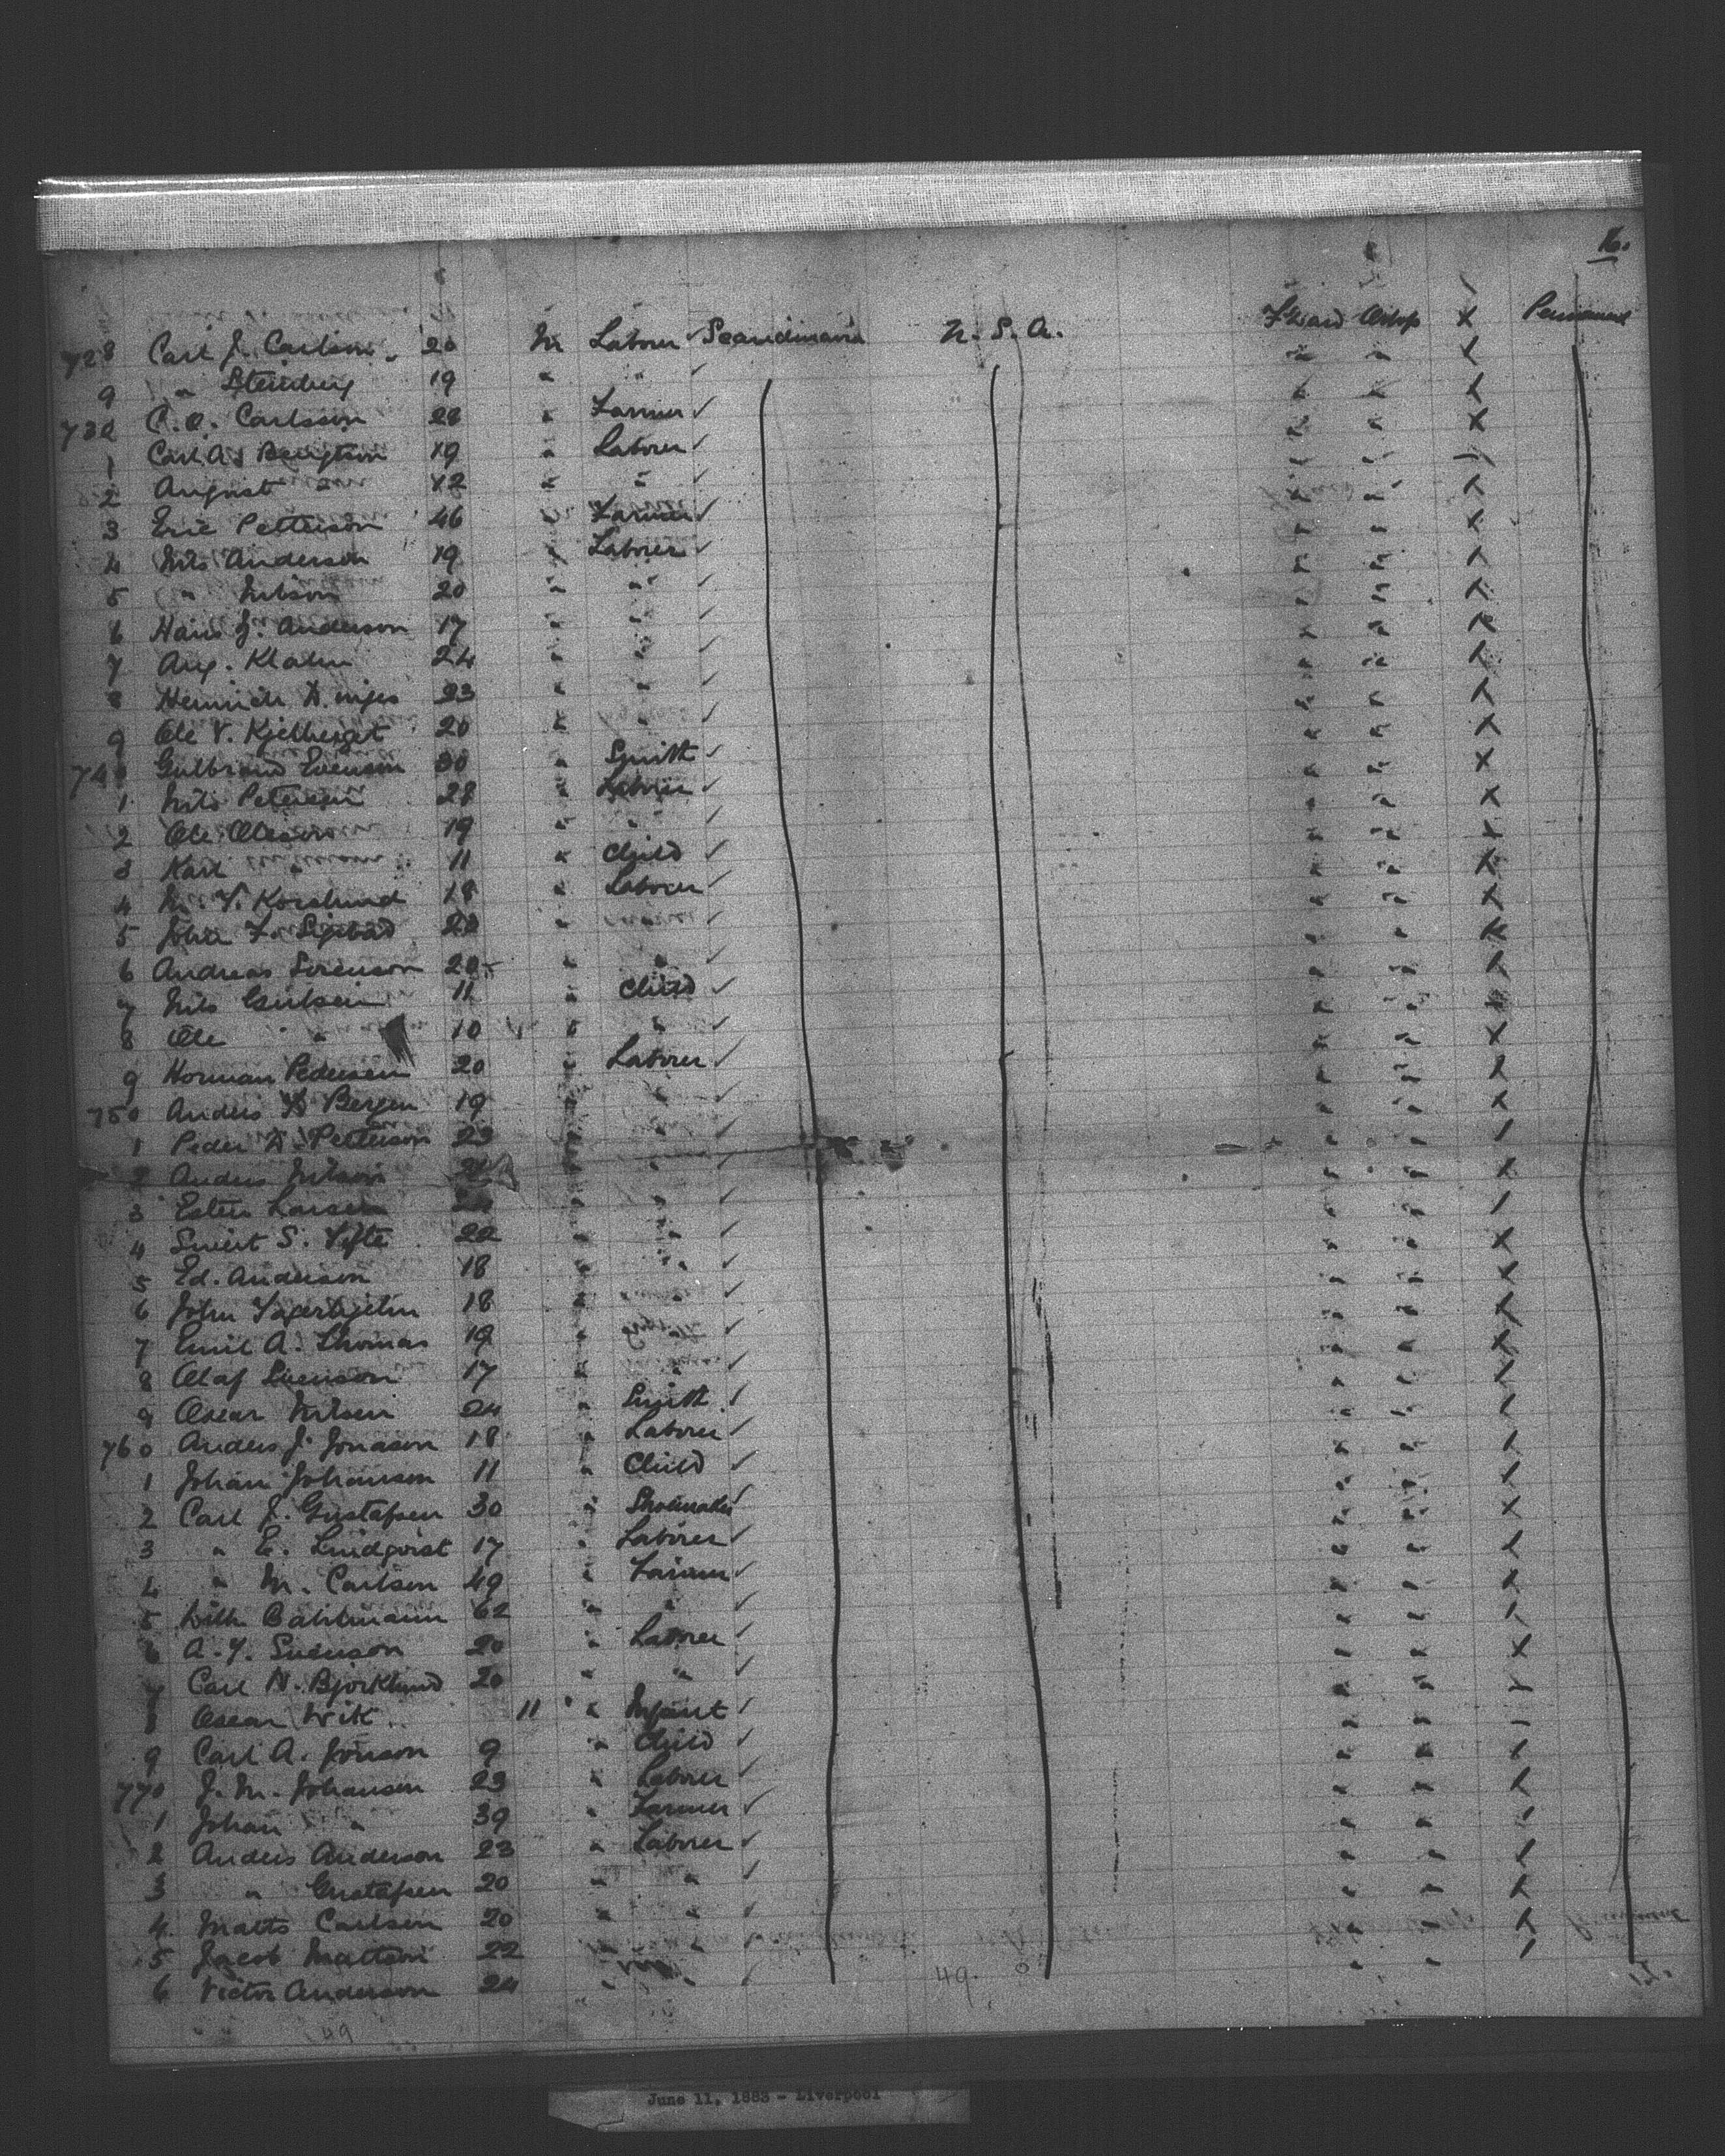 16.
728 Carl J. Carlson 20 M Laborer ✓ Scandinavia U.S.A. F Ward Aships X Permanent
9 " Steinberg 19 " " ✓ " " X
730 C. O. Carlsson 28 " Farmer ✓ " " X
1 Carl A. Bengtson 19 " Laborer ✓ " " X
2 August " 42 " " ✓ " "
3 Eric Petterson 46 " Farmer ✓ " " X
4 Nils Anderson 19 " Laborer ✓ " " X
5 " Nilson 20 " " ✓ " " X
6 Hans J. Anderson 17 " " ✓ " " X
7 Aug. Klahn 24 " " ✓ " " X
8 Heinrich 23 " " ✓ " " X
9 Ole V. Kjelberget 20 " " ✓ " " X
740 Gulbrand Evenson 30 " Smith ✓ " " X
1 Nils Peterson 28 " Laborer ✓ " " X
2 Ole Oleson 19 " " ✓ " " X
3 Karl " 11 " Child ✓ " " X
4 M. V. Korslund 18 " Laborer ✓ " " X
5 John F. 22 " ✓ " " X
6 Andreas Sorenson 20 " " ✓ " " X
7 Nils 11 " Child ✓ " " X
8 Ole " 10 " " ✓ " " X
9 Herman Pedersen 20 " Laborer ✓ " " X
750 Anders Bergen 19 " " ✓ " " X
1 Peder A. Petterson 23 " " ✓ " "
2 Anders Nilson " " ✓ " " X
3 Esten Larsen " " ✓ " "
4 Sivert S. Tifte 22 " " ✓ " " X
5 Ed. Anderson 18 " " ✓ " " X
6 John 18 " " ✓ " " X
7 Emil A. Thomas 19 " ✓ " " X
8 Olaf Svenson 17 " " ✓ " " X
9 Oscar Nilsen 24 " Smith ✓ " "
760 Anders J. Jonason 18 " Laborer ✓ " " X
1 Johan Johanson 11 " Child ✓ " " X
2 Carl J. Gustafsen 30 " Shoemaker ✓ " " X
3 " E. Lindqvist 17 " Laborer ✓ " " X
4 " M. Carlsen 49 " Farmer ✓ " " X
5 Wilh Bahlmann 62 " " ✓ " " X
6 A. Y. Svenson 20 " Laborer ✓ " " X
7 Carl N. Bjorklund 20 " " ✓ " "
8 Oscar Wik 11 " Infant ✓ " " –
9 Carl A. Jonson 9 " Child ✓ " " X
770 J. M. Johansen 23 " Laborer ✓ " " X
1 Johan " 39 " Farmer ✓ " "
2 Anders Anderson 23 " Laborer ✓ " " X
3 " Gustafsen 20 " " ✓ " " X
4 Matts Carlsen 20 " " ✓ " " X
5 Jacob Mattson 22 " " ✓ " "
6 Victor Anderson 24 " " ✓
49 49
June 11, 1883 - Liverpool